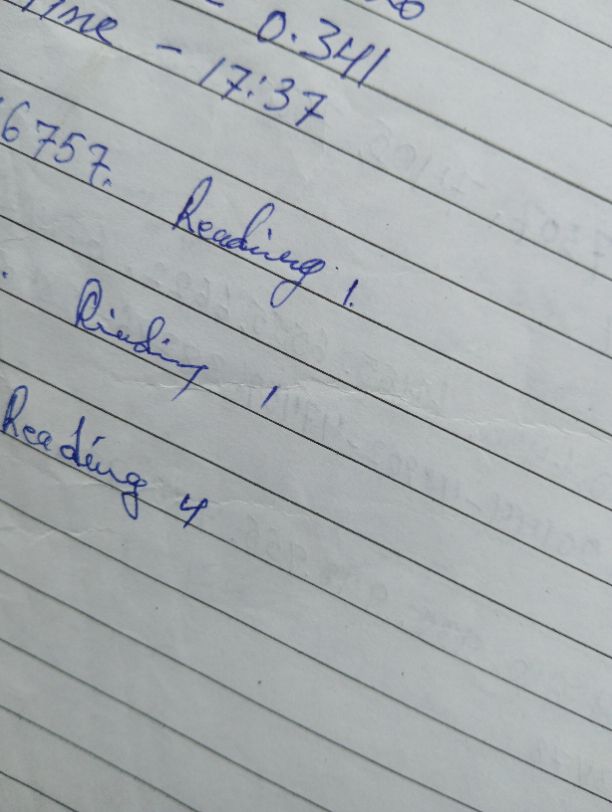 0.341
Time - 17:37
6757. Reading 1.
Reading 1
Reading 4